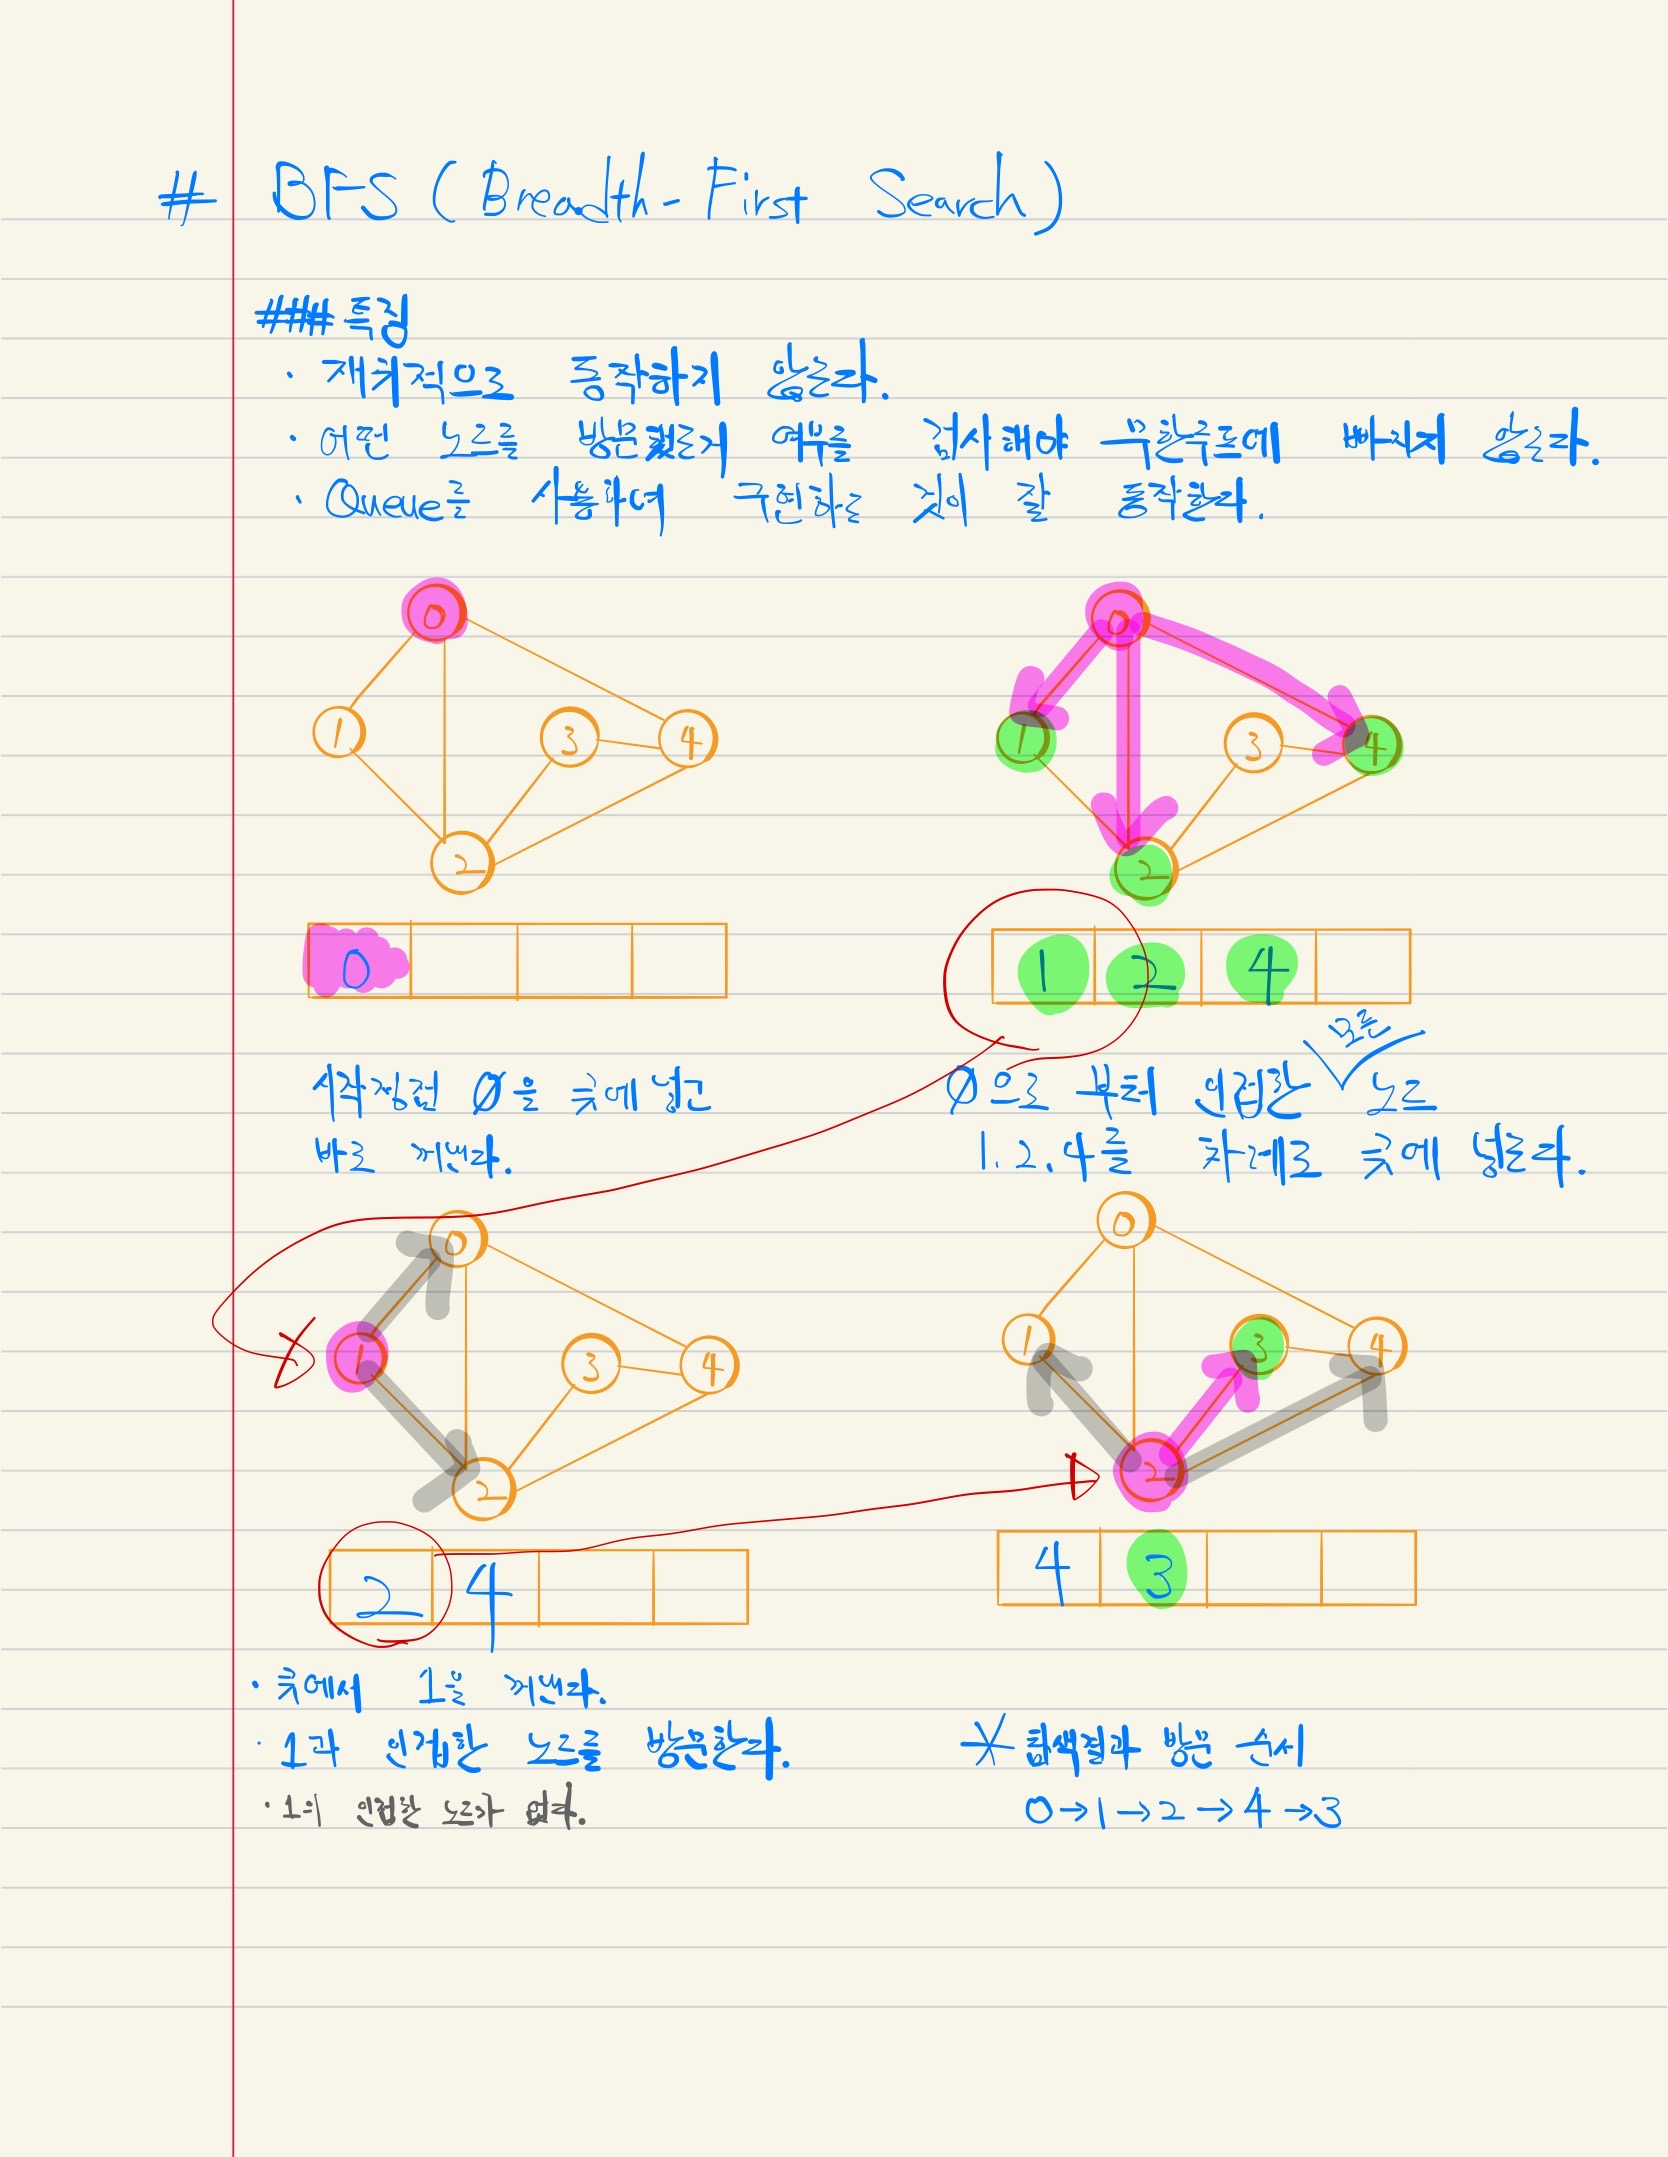 # BFS (Breadth-First Search)
### 특징
· 재귀적으로 동작하지 않는다.
· 어떤 노드를 방문했는지 여부를 검사해야 무한루프에 빠지지 않는다.
· Queue를 사용하여 구현하는 것이 잘 동작한다.
0
0
1
3
4
1
3
4
2
2
0
1 2 4
시작정점 0을 큐에 넣고
바로 꺼낸다.
0으로 부터 인접한 모든 노드
1.2.4를 차례로 큐에 넣는다.
0
0
1
3
4
1
3
4
2
2
2 4
4 3
· 큐에서 1을 꺼낸다.
· 1과 인접한 노드를 방문한다.
· 1의 인접한 노드가 없다.
* 탐색결과 방문 순서
0→1→2→4→3